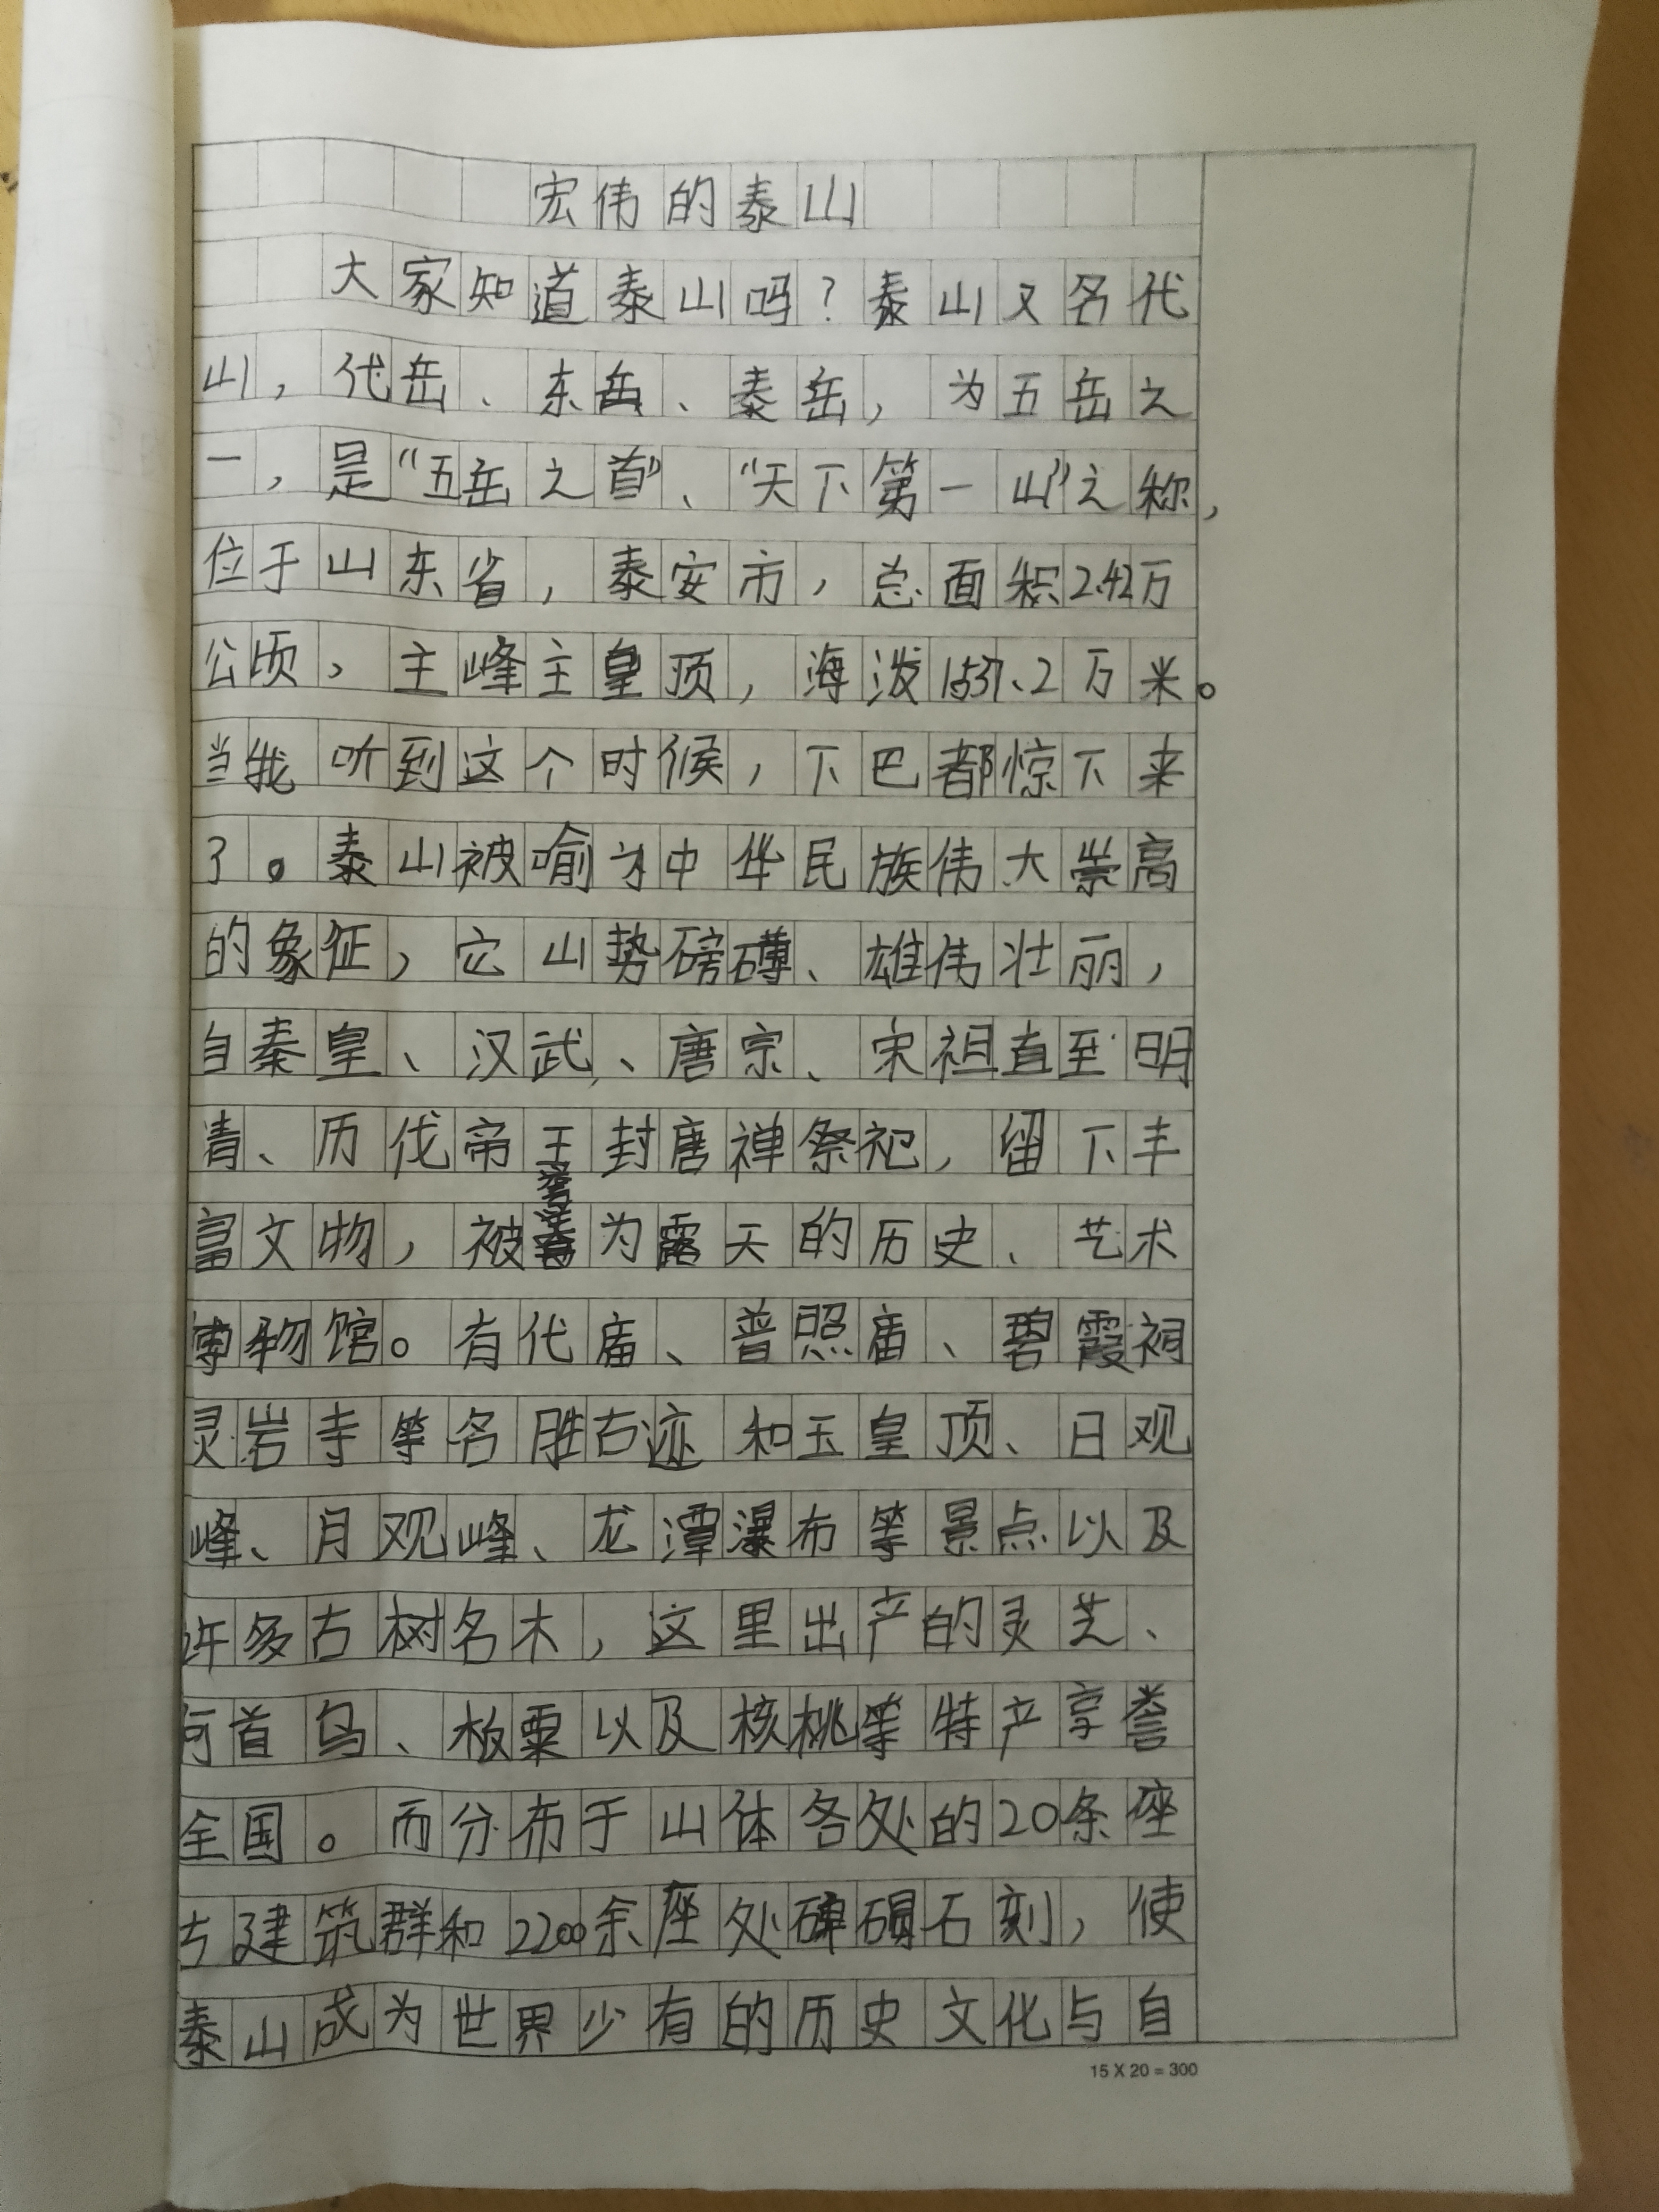 宏伟的泰山
大家知道泰山吗?泰山又名代
山,代岳、东岳、泰岳,为五岳之
一,是“五岳之首”、“天下第一山”之称,
位于山东省,泰安市,总面积2.42万
公顷,主峰主皇顶,海泼1537、2万米。
当我听到这个时候,下巴都惊下来
了。泰山被喻为中华民族伟大崇高
的象征,它山势磅礴、雄伟壮丽,
自秦皇、汉武、唐宗、宋祖直至明
清、历代帝王封唐禅祭祀,留下丰
富文物,被誉为露天的历史、艺术
博物馆。有代庙、普照庙、碧霞祠
灵岩寺等名胜古迹和玉皇顶、日观
峰、月观峰、龙潭瀑布等景点以及
许多古树名木,这里出产的灵芝、
何首乌、板栗以及核桃等特产享誉
全国。而分布于山体各处的20条座
古建筑群和2200余座处碑碣石刻,使
泰山成为世界少有的历史文化与自
15 X 20 = 300